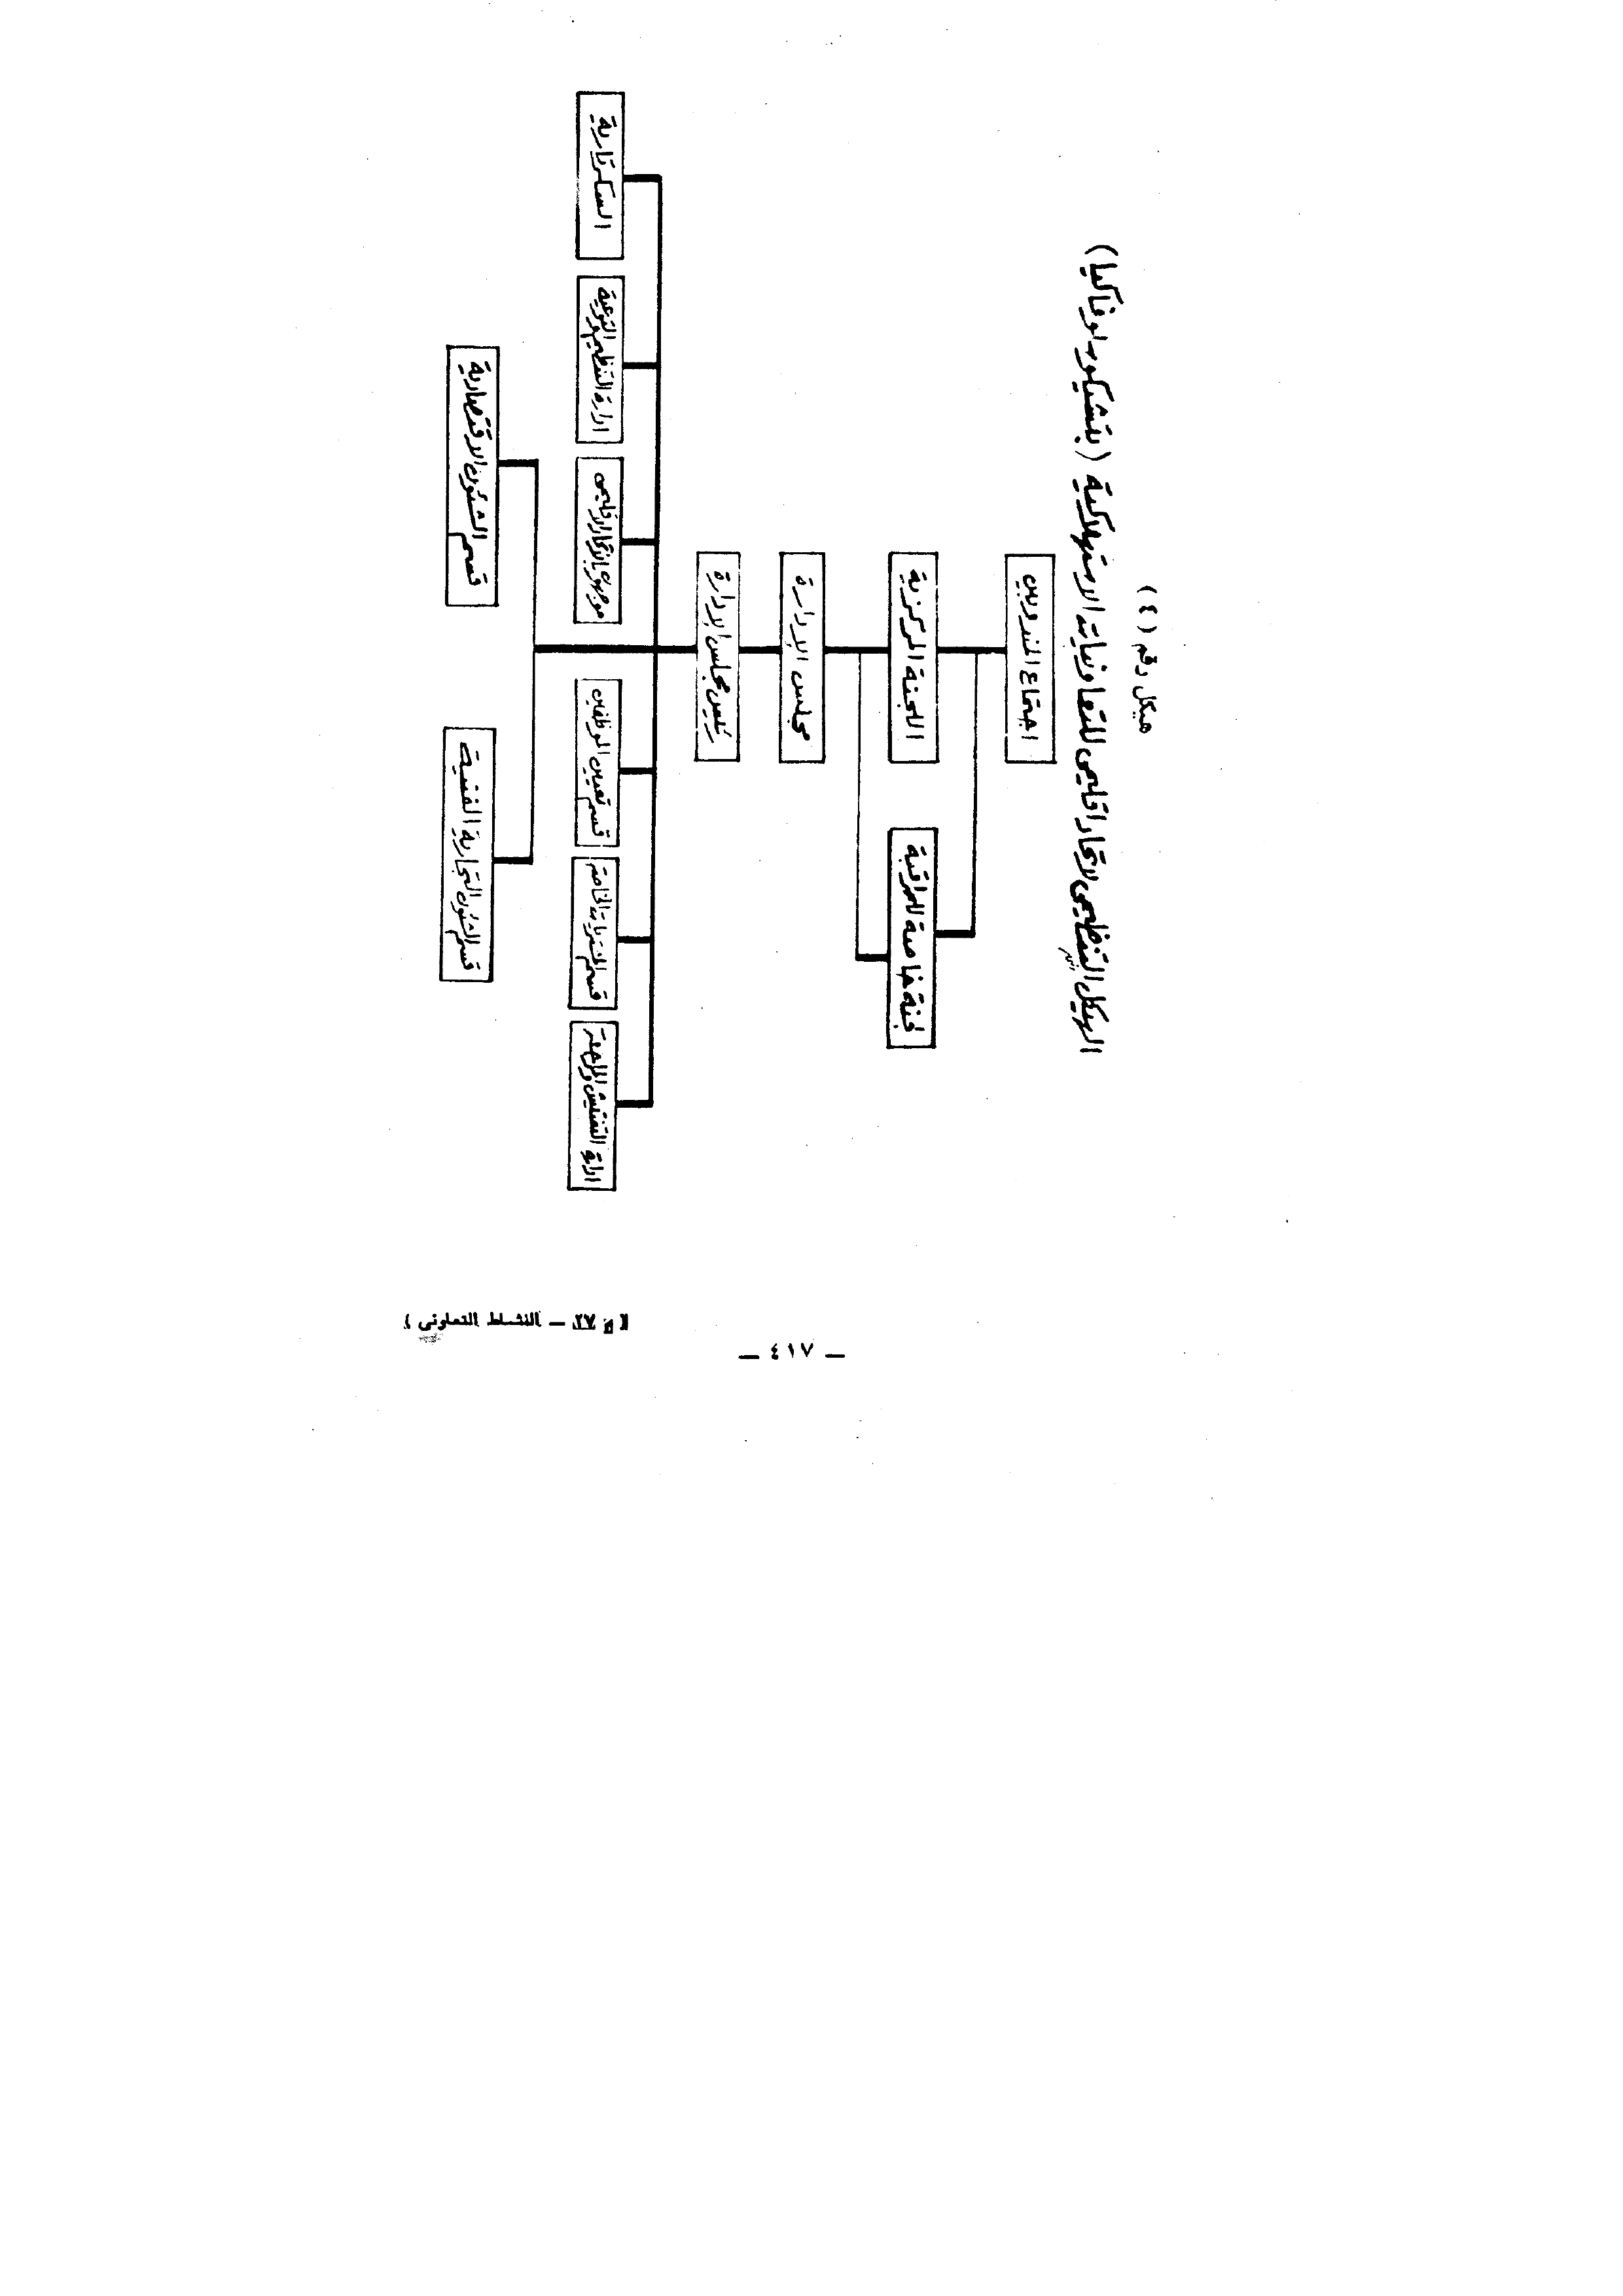 هيكل رقم (٤)
الهيكل التنظيمى لاتحاد اقليمى للتعاونيات الاستهلاكية (بتشيكوسلوفاكيا)
اجتماع المندوبين
اللجنة المركزية
لجنة خاصة للمراقبة
مجلس الإدارة
رئيس مجلس الإدارة
ادارة التفتيش والمراجعة
قسم المشتريات الخاصة
قسم تعيين الموظفين
موجهو الاتحاد الاقليمى
ادارة التنظيم والتوعية
السكرتارية
قسم الشئون التجارية الفنية
قسم الشئون الاقتصادية
(م ٢٧ — النشاط التعاونى)
— ٤١٧ —